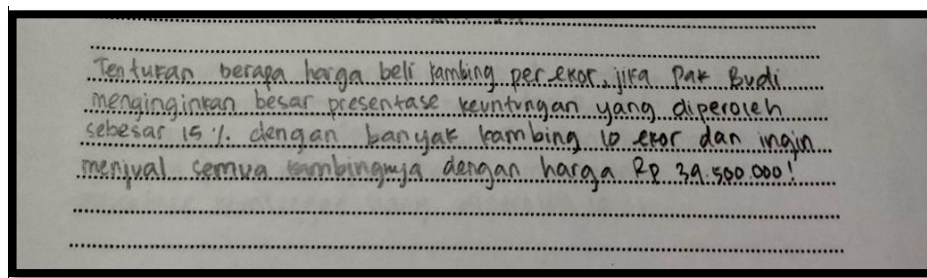 Tentukan berapa harga beli kambing per ekor, jika Pak Budi
menginginkan besar presentase keuntungan yang diperoleh
sebesar 15 %. dengan banyak kambing 10 ekor dan ingin
menjual semua kambingnya dengan harga Rp 39.500.000!